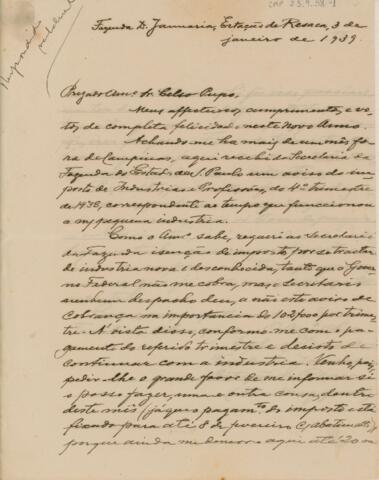 CMP 2.5.9.58-1
Respondida
Fazenda D. Jannuaria, Estação de Resaca, 3 de
janeiro de 1939.
Prezado Amº Sr. Celso Pupo.
Meus affectuosos cumprimentos e vo-
tos de completa felicidade neste Novo Anno.
Achando-me ha mais de um mês fó-
ra de Campinas, aqui recebi da Secretaria da
Fazenda do Estado de S. Paulo um aviso do im-
posto de Industrias e Profissões, do 4º trimestre
de 1938, correspondente ao tempo que funccionou
a mª pequena industria.
Como o Amº sabe, requeri ao Secretario
da Fazenda isenção de imposto por se tractar
de industria nova e desconhecida, tanto que o Gover-
no Federal não me cobra, mas o Secretario
nenhum despacho deu, a não este aviso de
cobrança na importancia de 102$000 por trimes-
tre. Á vista disso, conformo-me com o pa-
gamento do referido trimestre e desisto de
continuar com a industria. Venho, pois,
pedir-lhe o grande favor de me informar si
posso fazer, uma e outra cousa, dentro
deste mês, já que o pagamtº do imposto está
fixado para até 8 de fevereiro
porque ainda me demoro aqui até 20 ou